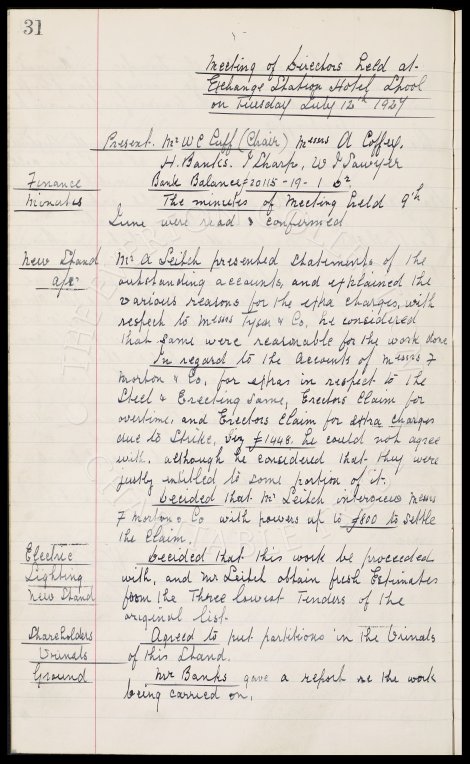 31
Meeting of Directors held at
Exchange Station Hotel Lpool
on Tuesday July 12th 1927
Present. Mr W C Cuff (Chair) Messrs A Coffey.
H. Banks. J Sharp, W J Sawyer
Finance Bank Balance £20115-19-1
Minutes The minutes of Meeting held 9th
June were read & confirmed
New Stand Mr A Leitch presented Statements of the
a/cs outstanding accounts, and explained the
various reasons for the extra charges, with
respect to Messrs Tyson & Co, he considered
that same were reasonable for the work done
In regard to the Accounts of Messrs F
Morton & Co. for extras in respect to the
Steel & Erecting same, Erectors Claim for
overtime, and Erectors Claim for extra charges
due to Strike, £1448. he could not agree
with. although he considered that they were
justly entitled to some portion of it.
Decided that Mr Leitch interview Messrs
F Morton & Co with powers up to £800 to settle
the Claim.
Electric Decided that this work be proceeded
Lighting with, and Mr Leitch obtain fresh Estimates
New Stand from the Three lowest Tenders of the
original list.
Shareholders Agreed to put partitions in the Urinals
Urinals of this Stand.
Ground Mr Banks gave a report re the work
being carried on.